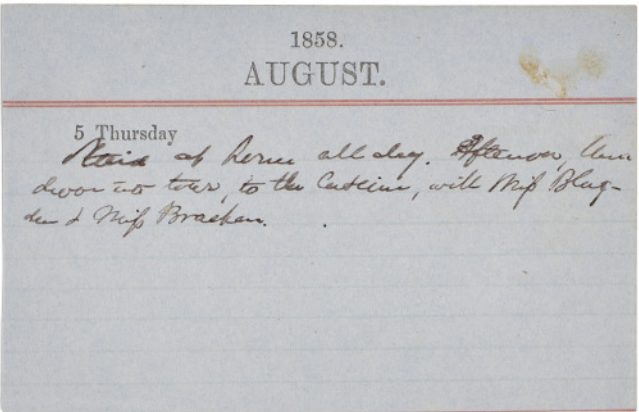 1858.
AUGUST.
5 Thursday
Staid at home all day. Afternoon, Una
drove into town, to the Cascine, with Miss Blag-
den & Miss Bracken.